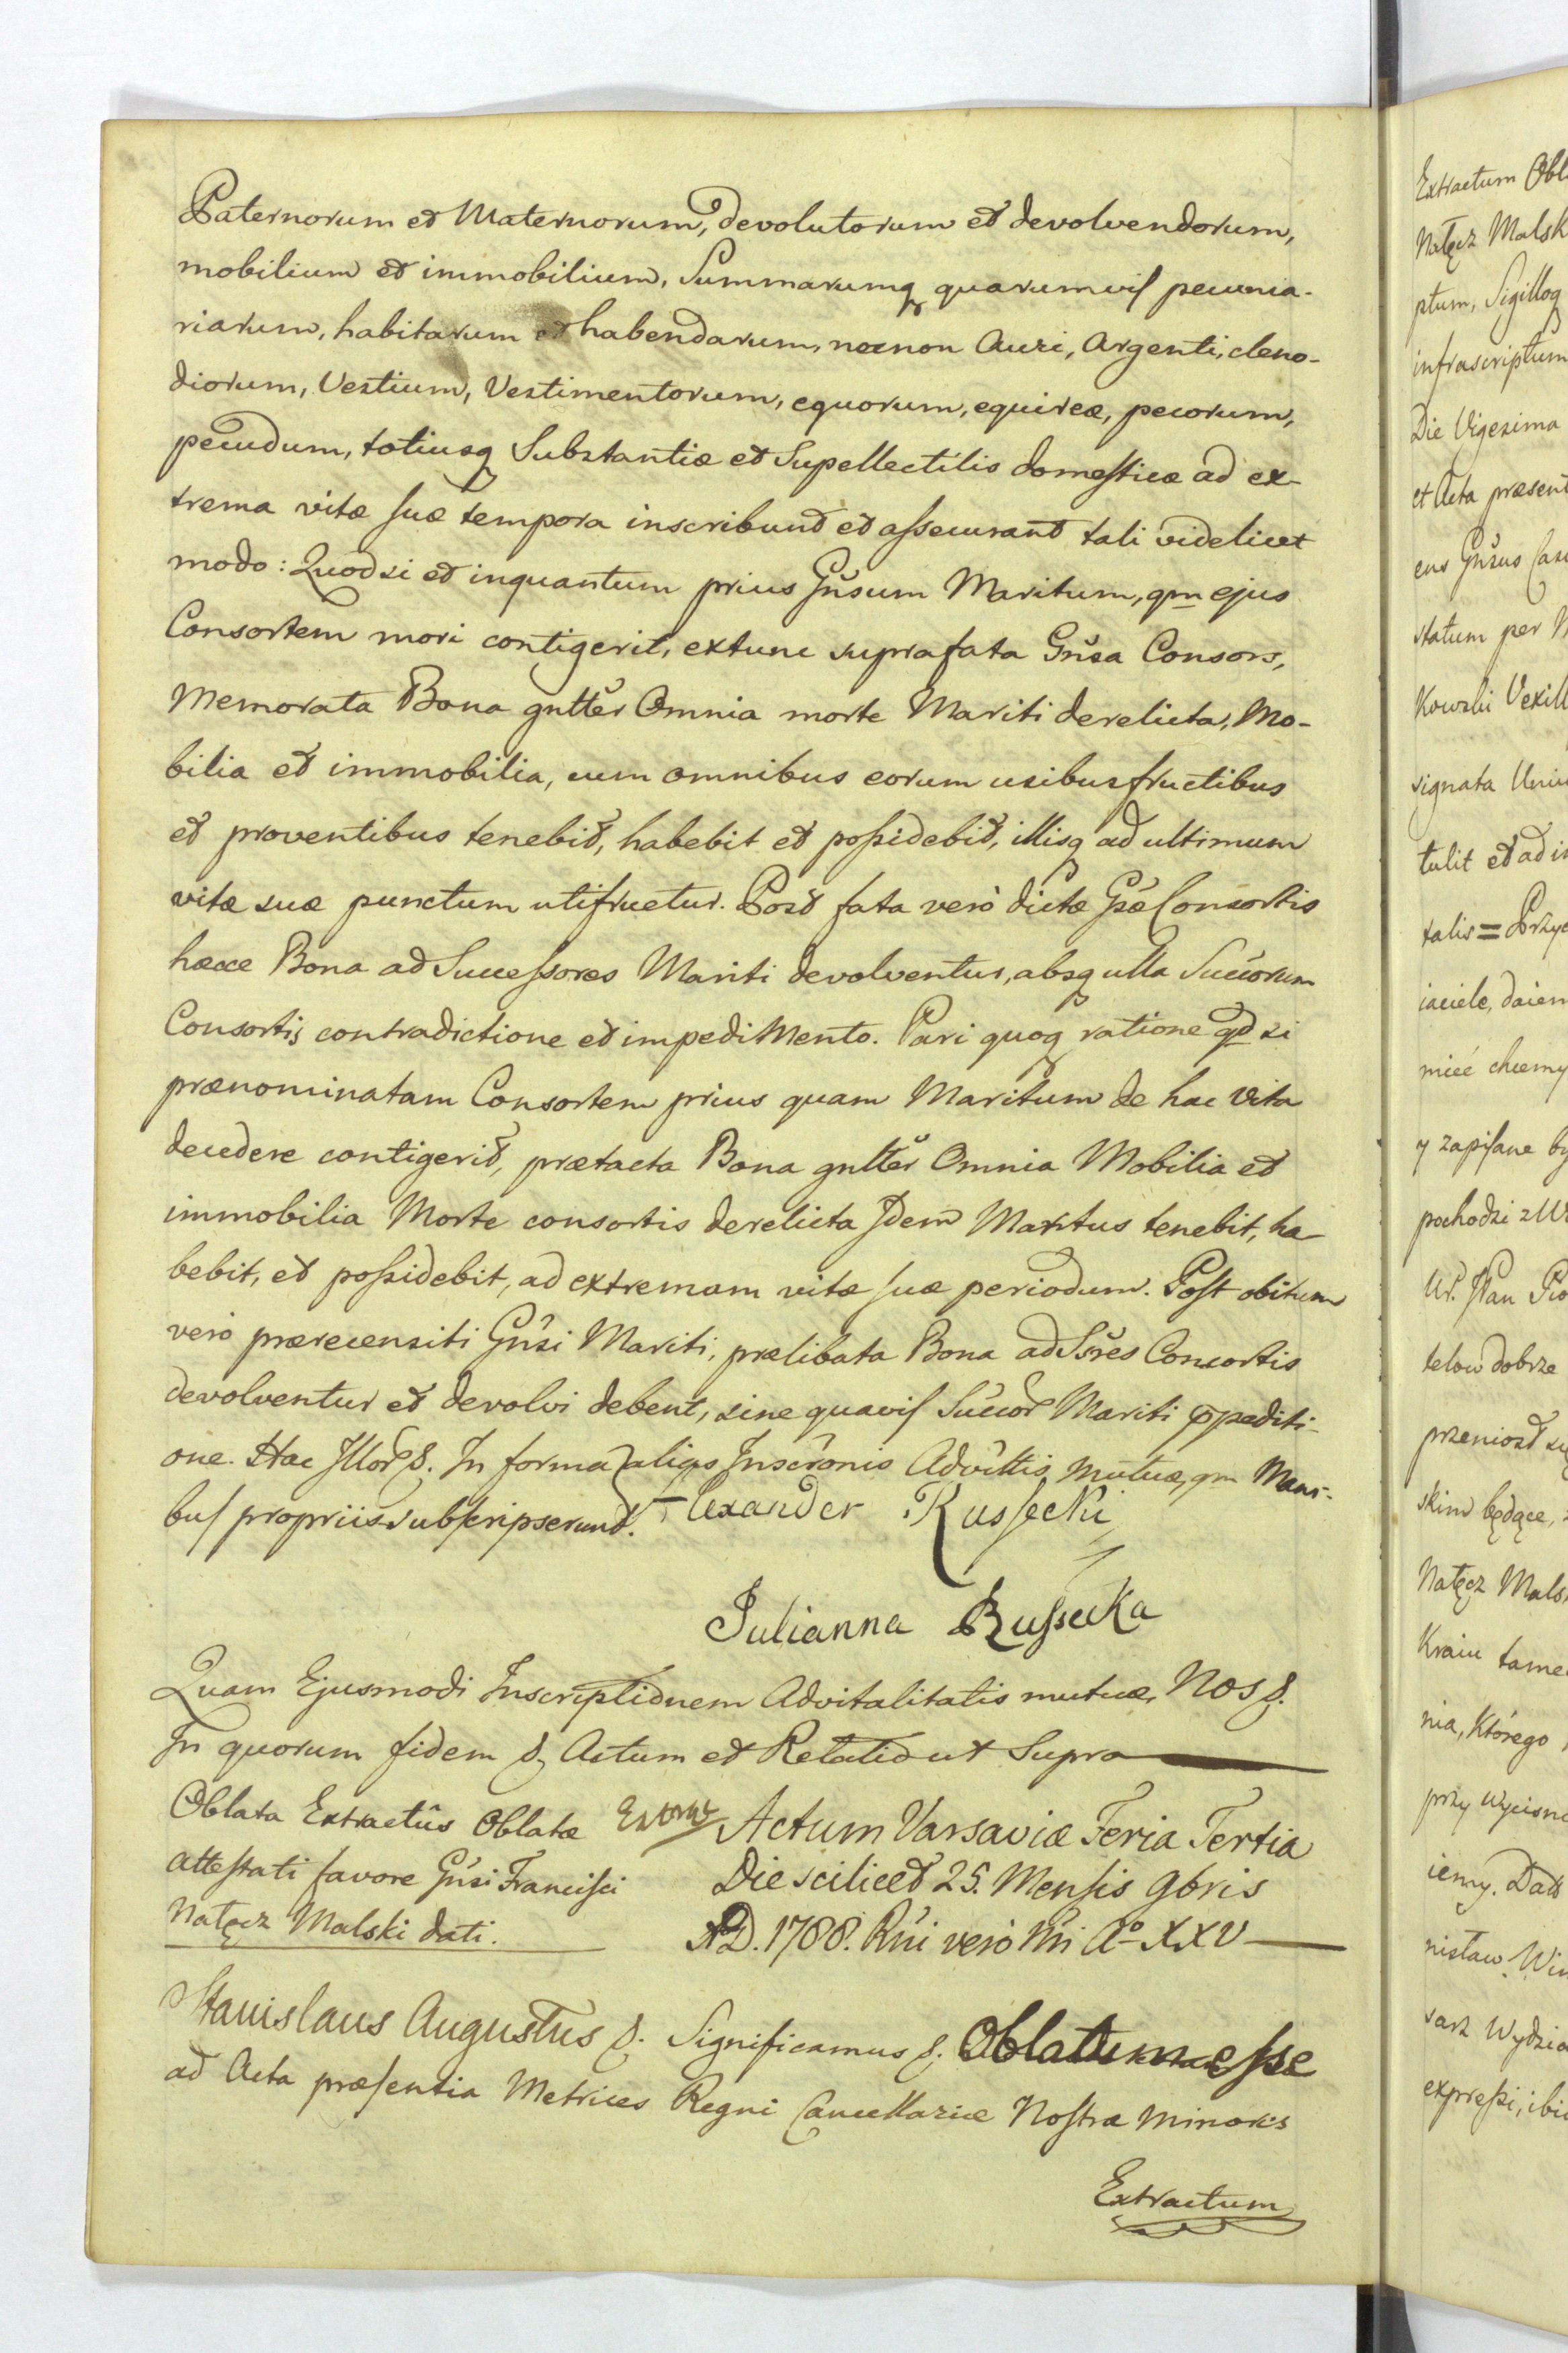 Paternorum et Maternorum, devolutorum et devolvendorum,
mobilium et immobilium, Summarumq quarumvis pecunia-
riarum, habitarum et habendarum, necnon Auri, Argenti, cleno-
diorum, Vestium, Vestimentorum, equorum, equireæ, pecorum,
pecudum, totiusq Substantiæ et Supellectilis domesticæ ad ex-
trema vitæ suæ tempora inscribunt et assecurant tali videlicet
modo: Quodsi et inquantum prius Gñsum Maritum, qm ejus
Consortem mori contigerit, extunc suprafata Gñsa Consors,
Memorata Bona gntter Omnia morte Mariti derelicta, Mo-
bilia et immobilia, cum omnibus eorum usibusfructibus
et proventibus tenebit, habebit et possidebit, illisq ad ultimum
vitæ suæ punctum utifruetur. Post fata verò dictæ Gsæ Consortis
hæcce Bona ad Successores Mariti devolventur, absq ulla Succorum
Consortis contradictione et impediMento. Pari quoq ratione qd si
prænominatam Consortem prius quam Maritum de hac Vita
decedere contigerit, prætacta Bona gntter Omnia Mobilia et
immobilia Morte consortis derelicta Jdem Maritus tenebit, ha-
bebit, et possidebit, ad extremam vitæ suæ periodum. Post obitum
verò prærecensiti Gñsi Mariti, prælibata Bona ad Ssres Consortis
devolventur et devolvi debent, sine quavis Succor Mariti ppediti-
one. Hac Jllor &. Jn forma aliqs Inscronis Advittis Mutuæ, qm Mani-
bus propriis subscripserunt. Alexander Russecki
Julianna Russecka
Quam Ejusmodi Inscriptionem Advitalitatis mutuæ, Nos &.
Jn quorum fidem & Actum et Relatio ut Supra
Oblata Extractûs Oblatæ
attestati favore Gñsi Francisci
Nałęcz Malski dati.
Actum Varsaviæ Feria Tertia
Die scilicet 25. Mensis 9bris
AD. 1788. Rñi verò Nri Aº XXV
Stanislaus Augustus &. Significamus &. Oblatum esse
ad Acta præsentia Metrices Regni Cancellariæ Nostræ Minoris
Extractum
Extractum Obl
Nałęcz Malsk
ptum, Sigilloq
infrascriptum
Die Vigesima
et Acta præsent
ens Gñsus Cas
statum per
Kowski Vexill
signata
tulit et ad in
talis = Przy
iaciele, daiem
mieć chcemy
y zapisane by
pochodzi z
Ur. Pan Pio
telow dobrze
przeniosł się
skim będące,
Nałęcz Malsk
Kraiu tame
nia, Którego
przy wycisne
iemy. Datt
nisław Win
sarz Wydzia
expressi, ibi